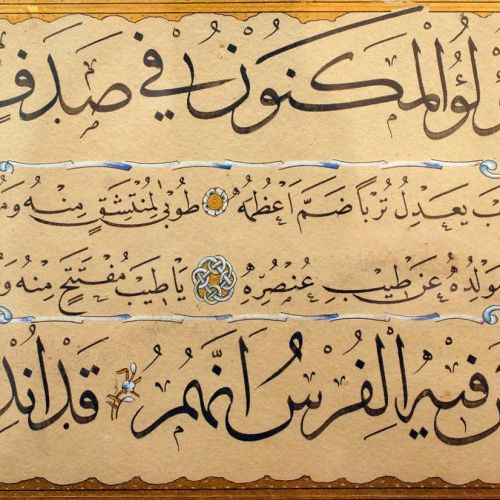 لؤ المكنون في صدف
يعدل تربا ضم اعظمه طوبى لمنتشق منه
مولده عن طيب عنصره يا طيب مفتتح منه
فيه الفرس انهم قد اند